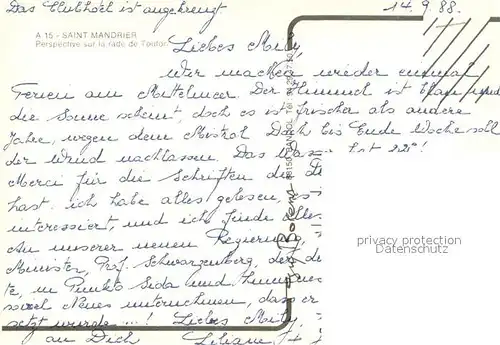 Das Clubhotel ist angekreuzt
14.9.88.
A 15 - SAINT MANDRIER
Perspective sur la rade de Toulon
Liebes Mily,
Wir machen wieder einmal
Ferien am Mittelmeer. Der Himmel ist blau, und
die Sonne scheint, doch es ist frischer als andere
Jahre, wegen dem Mistral. Doch bis Ende Woche soll
der Wind nachlassen. Das Was
ist 22°!
Merci für die Schriften die D
hast. ich habe alles gelesen, es i
interessiert, und ich finde alles
An unserer neuen Regierung,
Minister, Prof. Schwarzenberg, der d
te, in Punkto Seda und
soviel Neues unternehmen, dass er
setzt wurde ...! Liebes Mily,
an Dich Liliane
privacy protection
Datenschutz